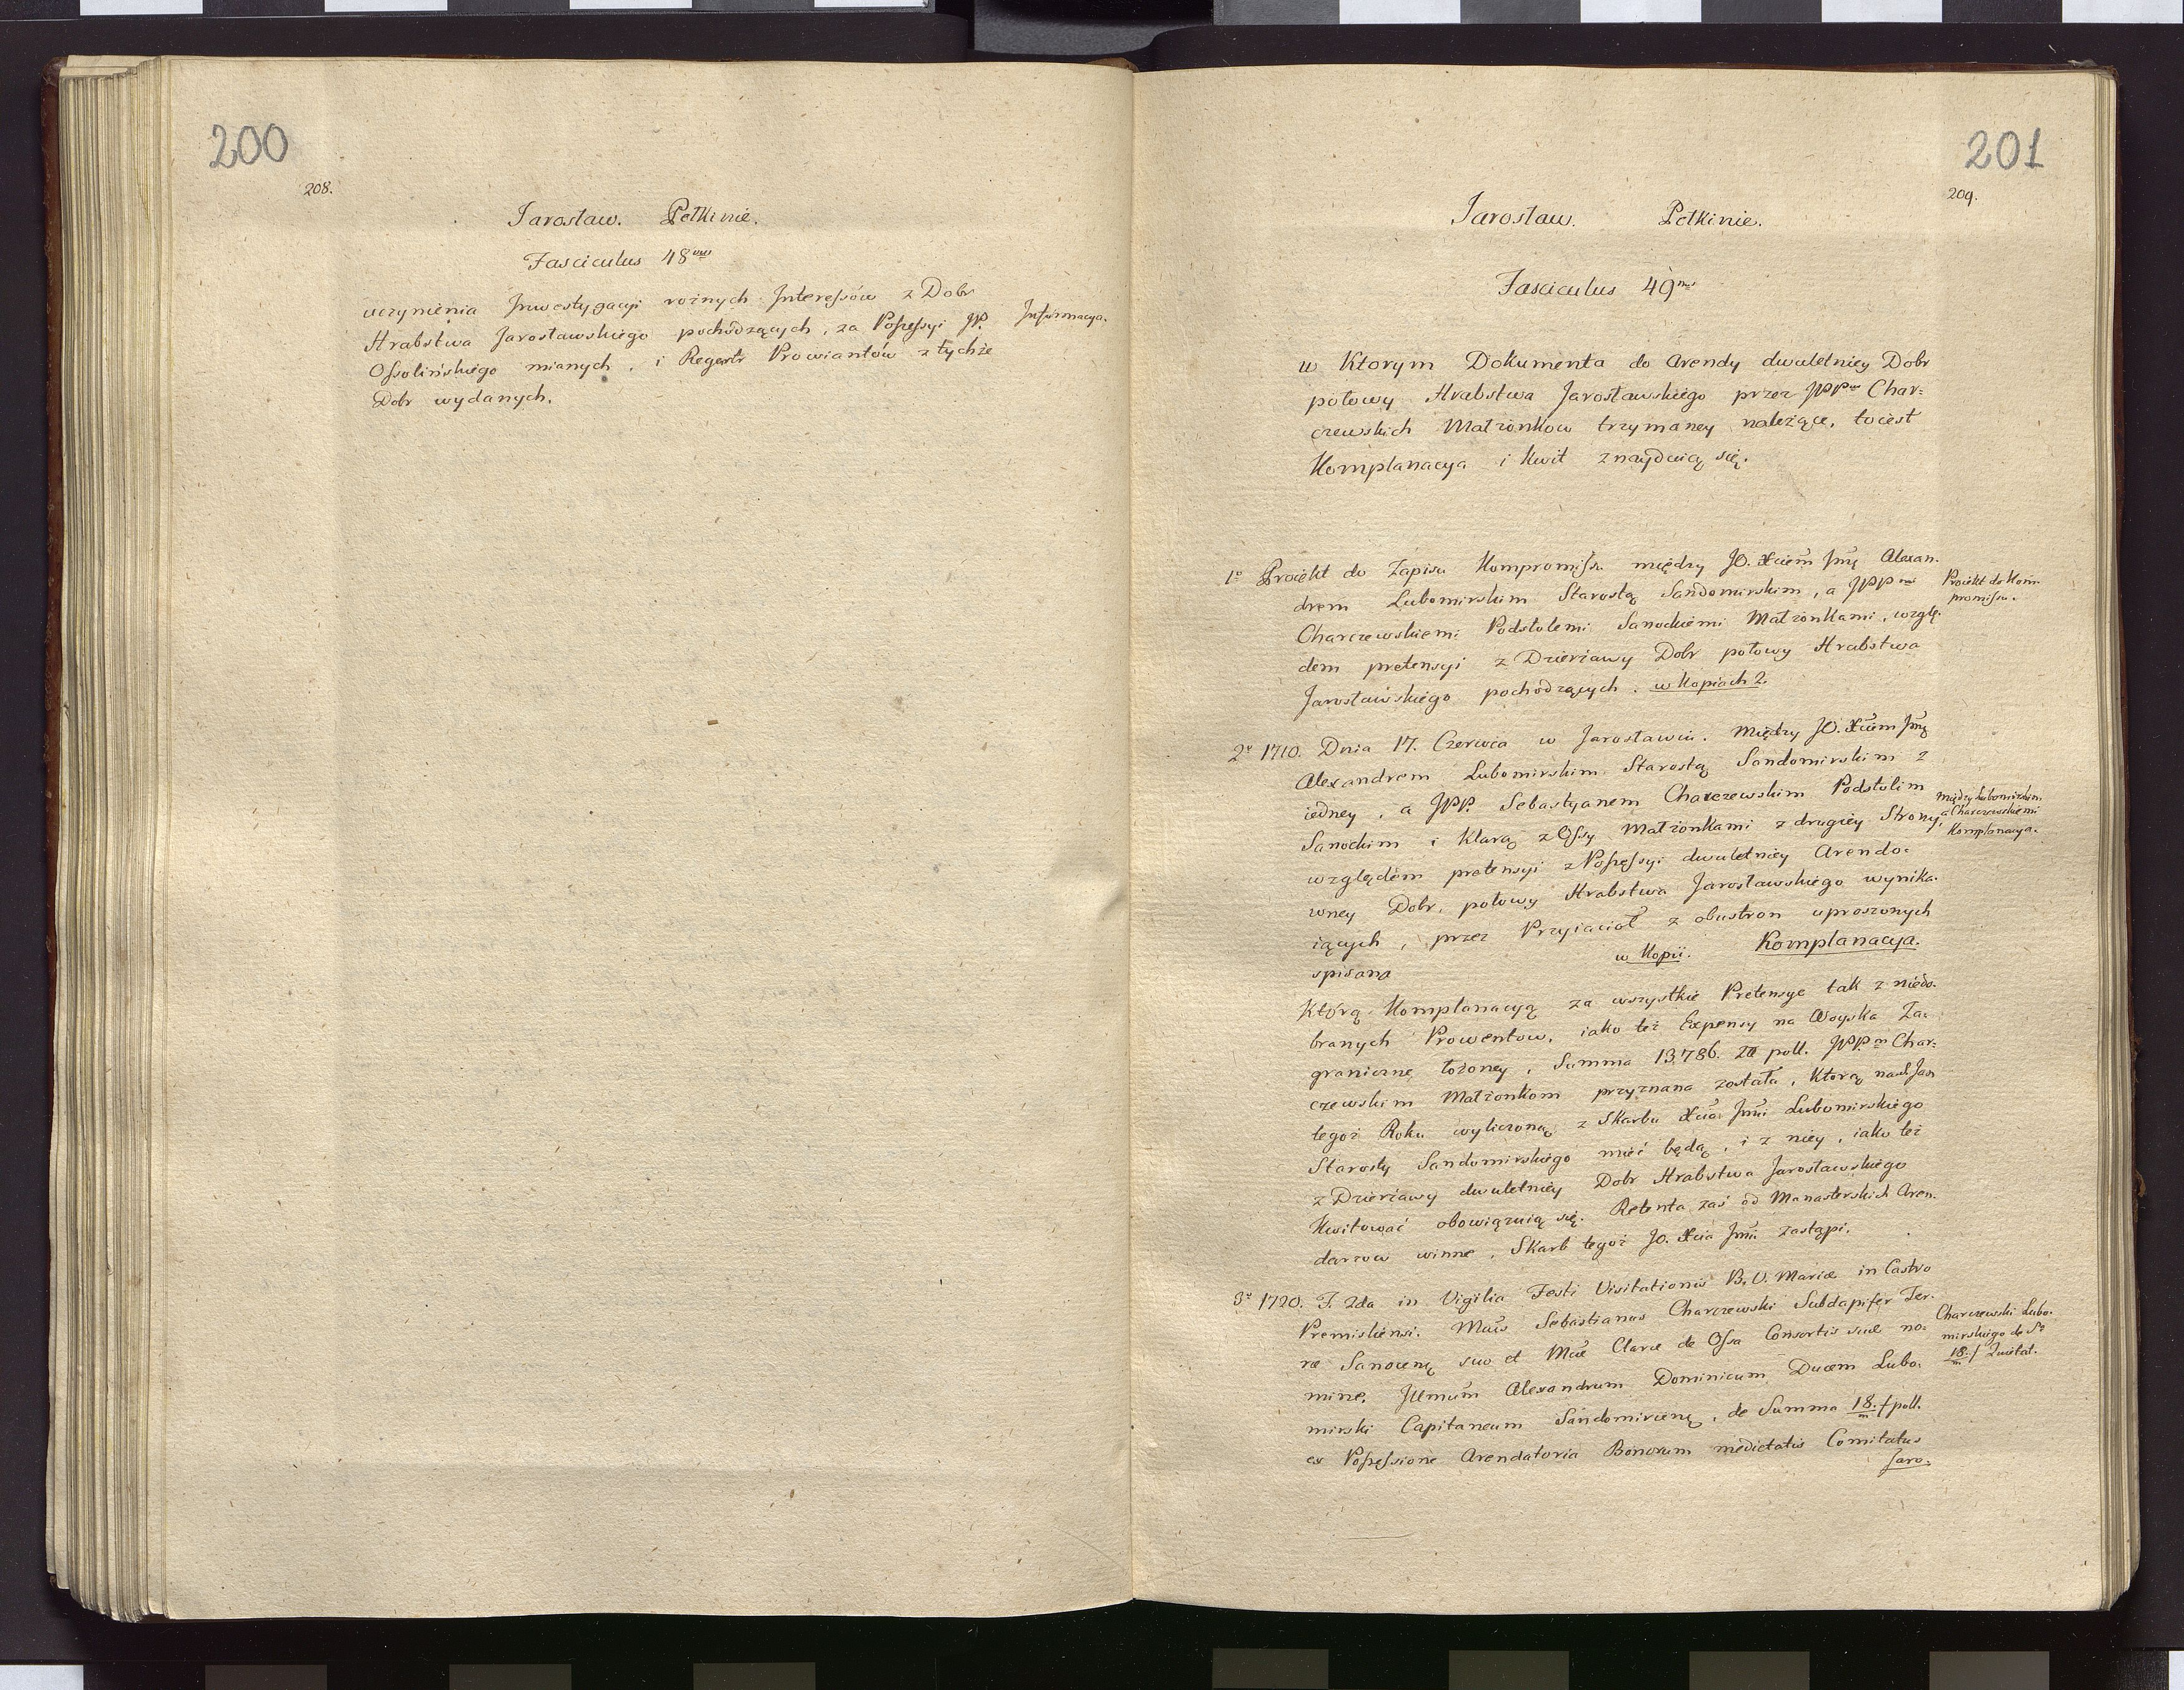 200
208.
Jarosław. Pełkinie.
Fasciculus 48vus
uczynienia Jnwestygacyi rożnych Jnteressów z Dobr
Hrabstwa Jarosławskiego pochodzących, za Possessyi JP.
Jnformacya.
Ossolińskiego mianych, i Regestr Prowiantów z tychże
Dobr wydanych.
201
209.
Jarosław. Pełkinie.
Fasciculus 49nus
w Ktorym Dokumenta do Arendy dwuletniey Dobr
połowy Hrabstwa Jarosławskiego przez JPPw Char=
czewskich Małżonkow trzymaney należące, toiest
Komplanacya i Kwit znayduią się.
1o Proiekt do Zapisu Kompromissu między JO. Xciem Jmę Alexan-
drem Lubomirskim Starostą Sandomirskim, a JPPmi
Proiekt do Kom-
promissu.
Charczewskiemi Podstolemi Sanockiemi Małżonkami, wzglę-
dem pretensyi z Dzierżawy Dobr połowy Hrabstwa
Jarosławskiego pochodzących. w Kopiach 2.
2o 1710. Dnia 17. Czerwca w Jarosławiu. Między JO. Xciem Jmę
Alexandrem Lubomirskim Starostą Sandomirskim z
iedney, a JPP. Sebastyanem Charczewskim Podstolim
Sanockim i Klarą z Ossy Małżonkami z drugiey Strony,
między Lubomirskim
a Charczewskiemi
Komplanacya.
względem pretensyi z Possessyi dwuletniey Arendo-
wney Dobr, połowy Hrabstwa Jarosławskiego wynika-
iących, przez Przyiacioł z obustron uproszonych
spisana w Kopii. Komplanacya.
Którą Komplanacyą za wszystkie Pretensye tak z niedo-
branych Prowentow, iako też Expensy na Woyska Za-
graniczne łożoney, Summa 13,786. Zł poll. JPPm Char=
czewskim Małżonkom przyznana została, Którą na S. Jan
tegoż Roku wyliczoną z Skarbu Xcia Jmci Lubomirskiego
Starosty Sandomirskiego mieć będą, i z niey, iako też
z Dzierżawy dwuletniey Dobr Hrabstwa Jarosławskiego
Kwitować obowiązuią się. Retenta zaś od Manasterskich Aren-
darzow winne, Skarb tegoż Jo. Xcia Jmci zastąpi.
3o 1720. F. 2da in Vigilia Festi Visitationis B. V. Mariæ in Castro
Premisliensi. Mcus Sebastianus Charczewski Subdapifer Ter-
ræ Sanocen suo et Mcæ Claræ de Ossa Consortis suæ no-
Charczewski Lubo-
mirskiego de Sa
18/m f Quietat.
mine, Jllmum Alexandrum Dominicum Ducem Lubo-
mirski Capitaneum Sandomirien, de Summa 18/m f poll.
ex Possessione Arendatoria Bonorum medietatis Comitatus
Jaro-